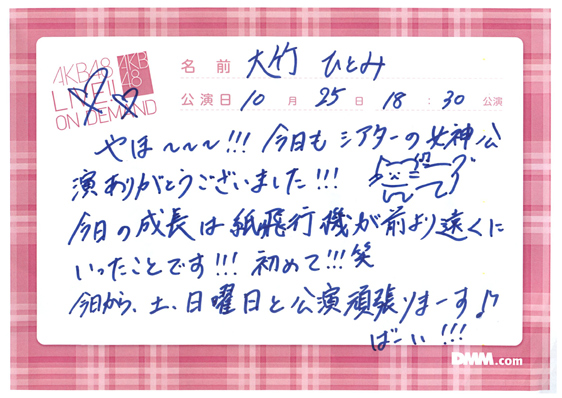 AKB48
LIVE!!
ON DEMAND
AKB
48
名前 大竹 ひとみ
公演日 10 月 25 日 18 : 30 公演
やほ〜〜〜!!! 今日もシアターの女神公
演ありがとうございました!!!
今日の成長は紙飛行機が前より遠くに
いったことです!!! 初めて!!!笑
今日から、土、日曜日と公演頑張りまーす♪
ばーい!!!
DMM.com